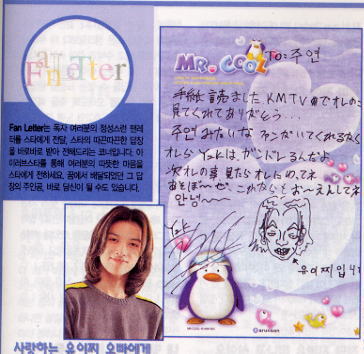 a Fan Letter
Fan Letter는 독자 여러분의 정성스런 팬레
터를 스타에게 전달, 스타의 따끈따끈한 답장
을 바로바로 받아 전해드리는 코너랍니다. 아
이러브스타를 통해 여러분의 따뜻한 마음을
스타에게 전하세요. 꿈에서 배달되었던 그 답
장의 주인공, 바로 당신이 될 수도 있습니다.
사랑하는 유이찌 오빠에게
MR. COOL
To: 주연
手紙 読ました KMTV のでオレの
見てくれてありがとう...
주연 みたいな ファンがいてくれるなら
オレら Y2Kは ガンバレるんだよ
次 オレの事 見たら オレにめってネ
あそぼ〜ぜ これからもお〜えんしてネ
안녕〜
유이찌